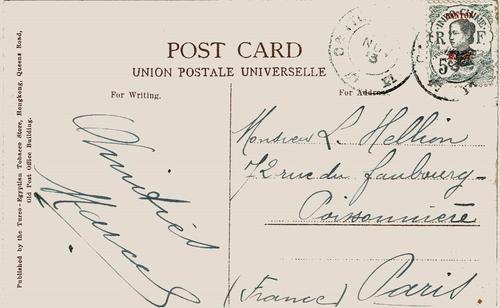 POST CARD
UNION POSTALE UNIVERSELLE
For Writing.
For Address
INDO-CHINE
R F
5
NOV
13
Published by the Turco-Egyptian Tobacco Store, Hongkong, Queens Road,
Old Post Office Building.
Amitiés
Marcel
Monsieur L. Hellion
72 rue du faubourg-
Poissonnière
Paris
(France)